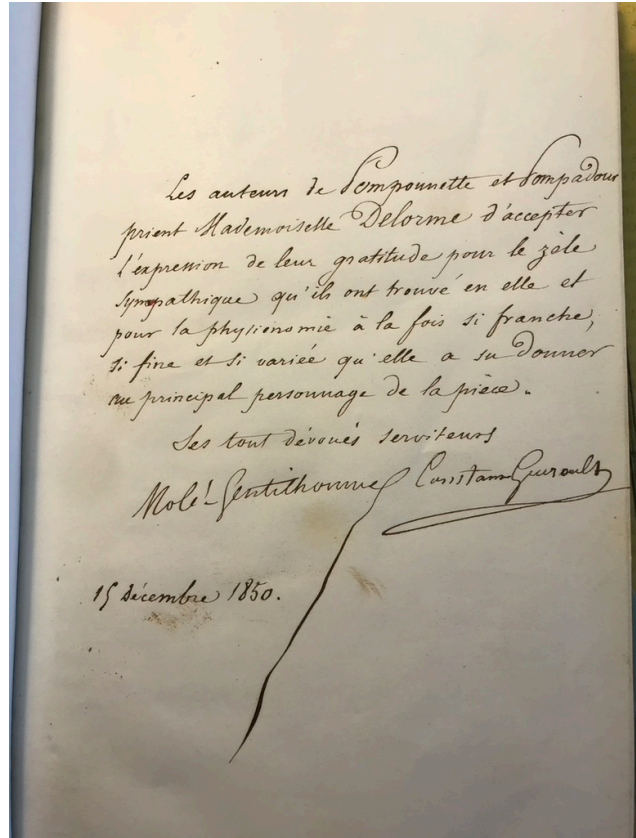 Les auteurs de Pomponnette et Pompadour
prient Mademoiselle Delorme d'accepter
l'expression de leur gratitude pour le zèle
sympathique qu'ils ont trouvé en elle et
pour la physionomie à la fois si franche,
si fine et si variée qu'elle a su donner
au principal personnage de la pièce.
Ses tout dévoués serviteurs
Molé-Gentilhomme Constant Guéroult
15 décembre 1850.